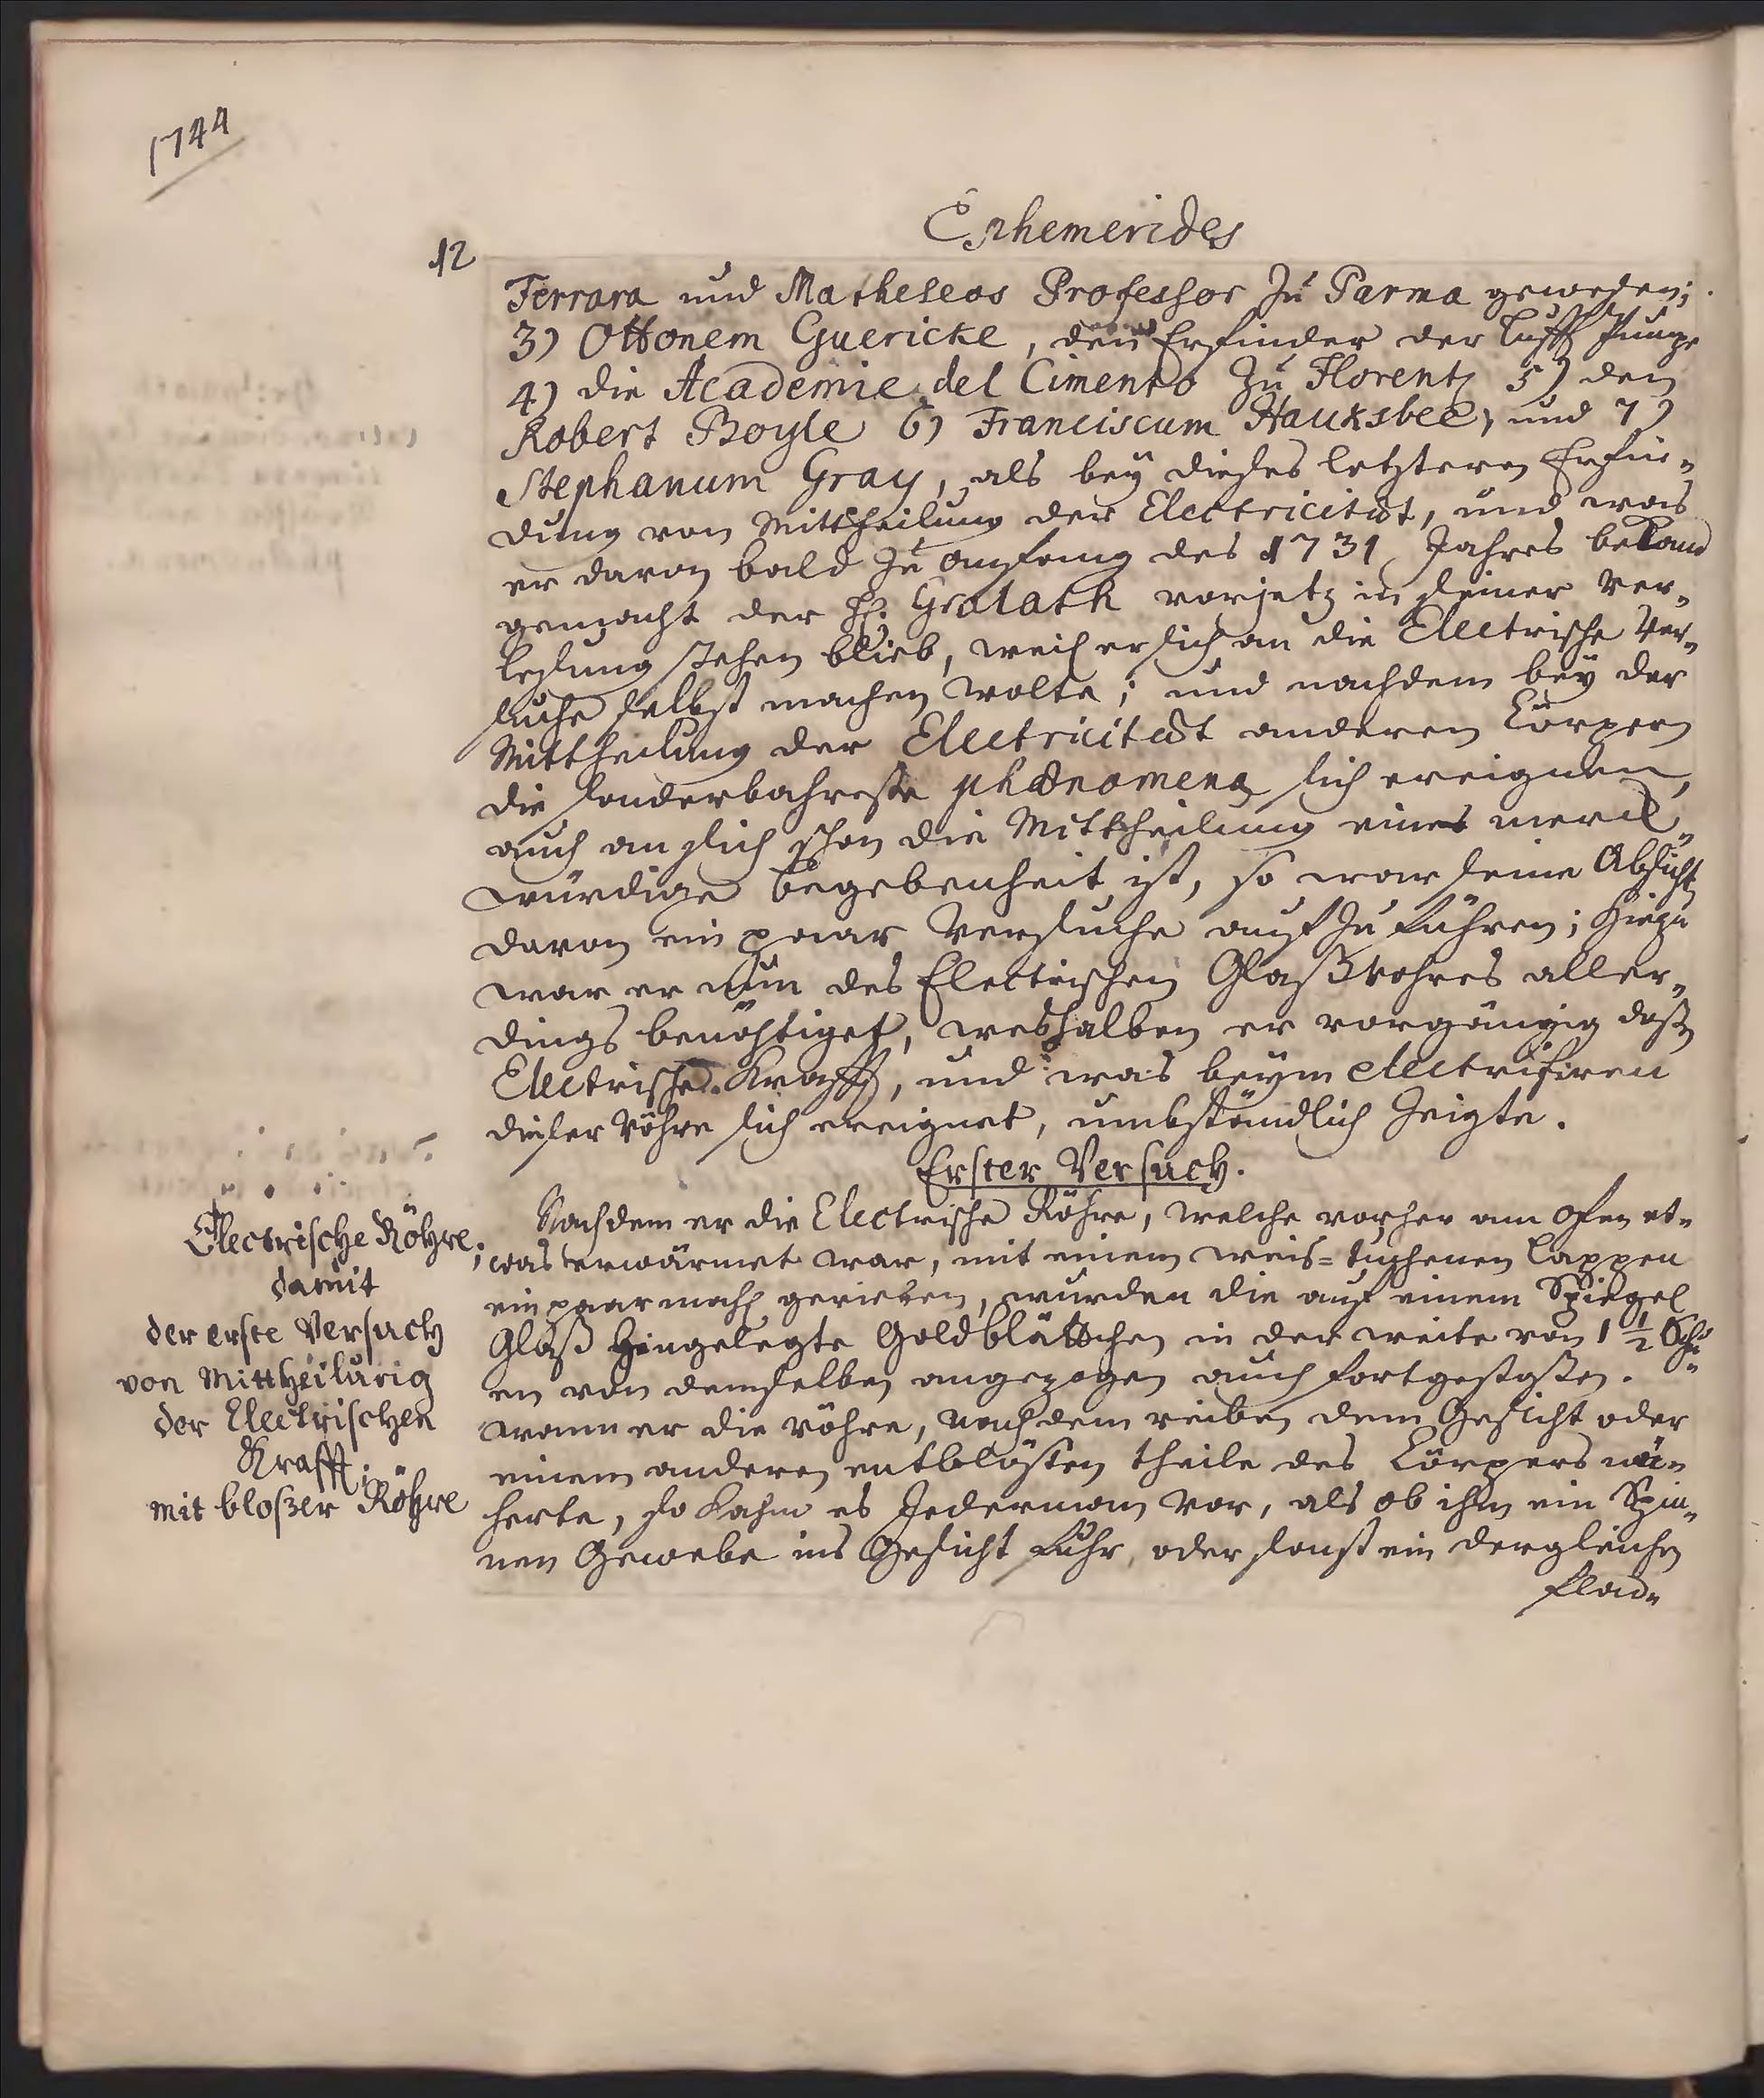 1744
Ephemerides
12
Ferrara und Matheseos Professor zu Parma gewesen;
3) Ottonem Guericke, den Erfinder der Lufft Pumpe
4) die Academie del Cimento zu Florentz 5) den
Robert Boyle 6) Franciscum Hauksbee, und 7)
Stephanum Gray, als bey dieses letzteren Erfin„
dung von Mittheilung der Electricitæt, und was
er davon bald zu anfang des 1731 Jahres bekand
gemacht der H. Gralath vorjetz in seiner Ver„
lesung stehen blieb, weil er sich an die Electrische Ver„
suche selbst machen wolte; und nachdem bey der
Mittheilung der Electricitæt anderen Cörpern
die sonderbahreste phænomena sich ereignen,
auch an sich schon die Mittheilung eine merck„
würdige Begebenheit ist, so war seine Absicht
davon ein paar Versuche auf zu führen; hiezu
war er nun des Electrischen Glaßrohres aller„
dings benöhtiget, weshalben er vorgängig deßen
Electrische Krafft, und was beym electrisiren
dieser Röhre sich ereignet, umbständlich zeigte.
Erster Versuch.
Nachdem er die Electrische Röhre, welche vorher am ofen et„
was erwärmet war, mit einem weis=tuchenen Lappen
ein paar mahl gerieben, wurden die auf einem Spiegel
Glaß hingelegte Goldblättchen in der weite von 1 1/2 Schu„
en von demselben angezogen auch fortgestoßen.
wann er die röhre, nach dem reiben dem Gesicht oder
einem anderen entblösten theile des Cörpers nä„
herte, so kahm es Jederman vor, als ob ihm ein Spin„
nen Gewebe ins Gesicht fuhr, oder sonst ein dergleichen
Electrische Röhre;
damit
der erste Versuch
von Mittheilung
der Electrischen
Krafft.
mit bloßer Röhre